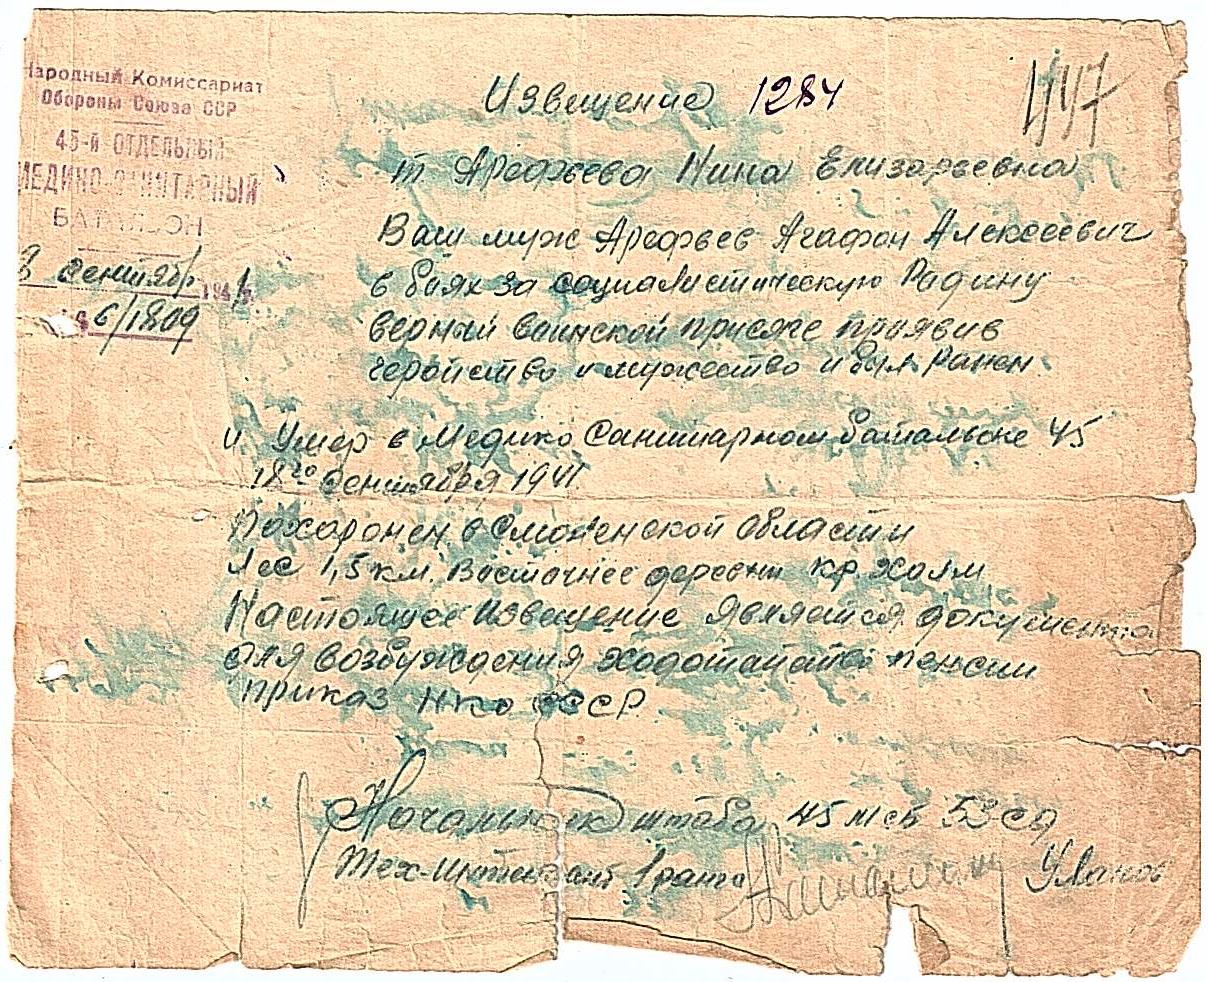 Народный Комиссариат
Обороны Союза ССР
45-й ОТДЕЛЬНЫЙ
МЕДИКО-САНИТАРНЫЙ
БАТАЛЬОН
8 сентябр 1941
6/1809
Извещение 1284
447
т Арефьева Нина Елизарьевна
Ваш муж Арефьев Агафон Алексеевич
в боях за социалистическую Радину
верный воинской присяге проявив
геройство и мужество и был Ранен
и Умер в Медико Санитарном баталъоне 45
18го сентября 1941
Похоронен в Смоленской области
Лес 1,5 км. Восточнее деревни Кр. Холм
Настоящее извещение является документа
для возбуждения ходотайства пенсии
приказ НКО СССР
Начальник штаба 45 мсб 53 сд
Тех-интендант 1 ранга
Уланов